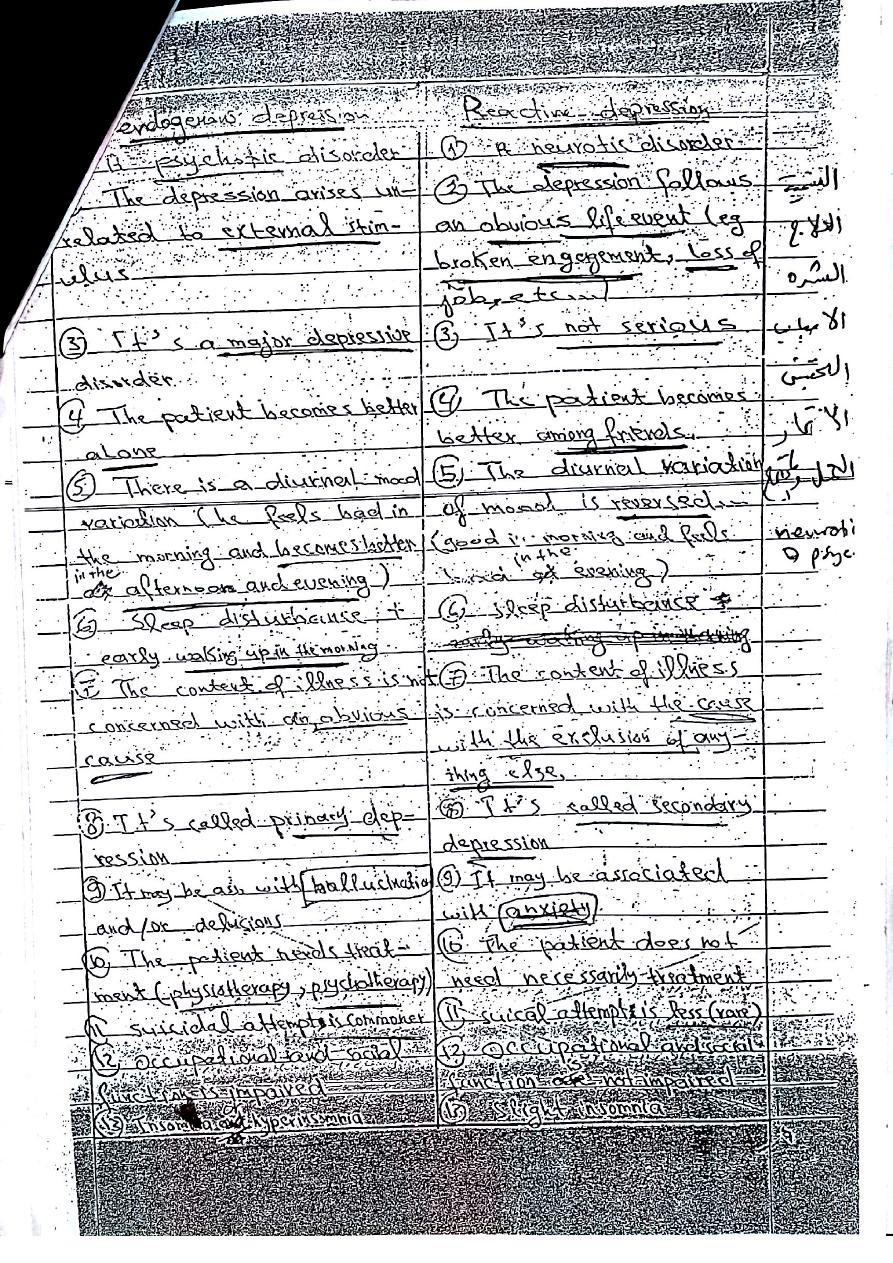 endogenous depression
A psychotic disorder
The depression arises un-
related to external stim-
ulus
③ It's a major depressive
disorder
④ The patient becomes better
alone
⑤ There is a diurnal mood
variation (he feels bad in
the morning and becomes better
in the
afternoon and evening)
⑥ Sleep disturbance +
early waking up in the morning
⑦ The content of illness is not
concerned with an obvious
cause
⑧ It's called primary dep-
ression
⑨ It may be ass with hallucination
and/or delusions
⑩ The patient needs treat-
ment (physiotherapy, psychotherapy)
⑪ suicidal attempt is commoner
⑫ Occupational and social
function is impaired
⑬ Insomnia or hyperinsomnia
Reactive depression
① A neurotic disorder
② The depression follows
an obvious life event (eg
broken engagement, loss of
job, etc...)
③ It's not serious
④ The patient becomes
better among friends.
⑤ The diurnal variation
of mood is reversed
(good in morning and feels
in the
evening)
⑥ sleep disturbance
early waking up in the morning
⑦ The content of illness
is concerned with the cause
with the exclusion of any-
thing else.
⑧ It's called secondary
depression
⑨ It may be associated
with anxiety.
⑩ The patient does not
need necessarily treatment
⑪ suical attempt is less (rare)
⑫ Occupational and social
function is not impaired
⑬ Slight insomnia
neuroti